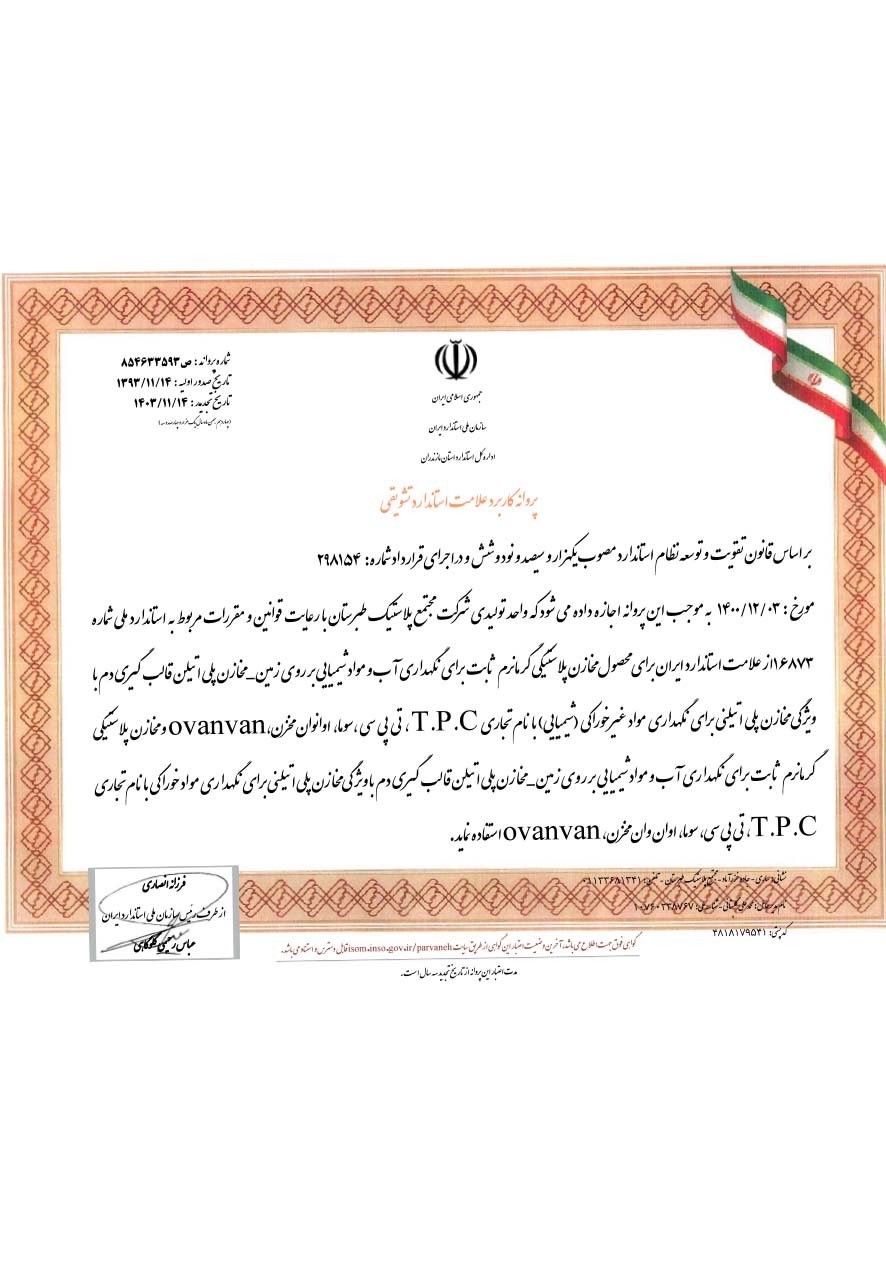 جمهوری اسلامی ایران
سازمان ملی استاندارد ایران
اداره کل استاندارد استان مازندران
شماره پروانه : ص ۸۵۴۶۳۳۵۹۳
تاریخ صدور اولیه : ۱۳۹۳/۱۱/۱۴
تاریخ تجدید : ۱۴۰۳/۱۱/۱۴
پروانه کاربرد علامت استاندارد تشویقی
بر اساس قانون تقویت و توسعه نظام استاندارد مصوب یکهزار و سیصد و نود و شش و در اجرای قرارداد شماره: ۲۹۸۱۵۴
مورخ : ۱۴۰۰/۱۲/۰۳ به موجب این پروانه اجازه داده می شود که واحد تولیدی شرکت مجتمع پلاستیک طبرستان با رعایت قوانین و مقررات مربوط به استاندارد ملی شماره
۱۶۸۷۳از علامت استاندارد ایران برای محصول مخازن پلاستیکی گرمانرم ثابت برای نگهداری آب و مواد شیمیایی بر روی زمین_مخازن پلی اتیلن قالب گیری دم با
ویژگی مخازن پلی اتیلنی برای نگهداری مواد غیرخوراکی (شیمیایی) با نام تجاری T.P.C ، تی پی سی ،سوما، اوانوان مخزن،ovanvan و مخازن پلاستیکی
گرمانرم ثابت برای نگهداری آب و مواد شیمیایی بر روی زمین_مخازن پلی اتیلن قالب گیری دم با ویژگی مخازن پلی اتیلنی برای نگهداری مواد خوراکی با نام تجاری
T.P.C، تی پی سی، سوما، اوان وان مخزن، ovanvan استفاده نماید.
فرزانه انصاری
از طرف رئیس سازمان ملی استاندارد ایران
کد پستی: ۴۸۱۸۱۷۹۵۴۱
گواهی فوق جهت اطلاع می باشد، آخرین وضعیت اعتبار این گواهی از طریق سایت isom.inso.gov.ir/parvaneh قابل دسترس و استناد می باشد.
مدت اعتبار این پروانه از تاریخ تجدید سه سال است.